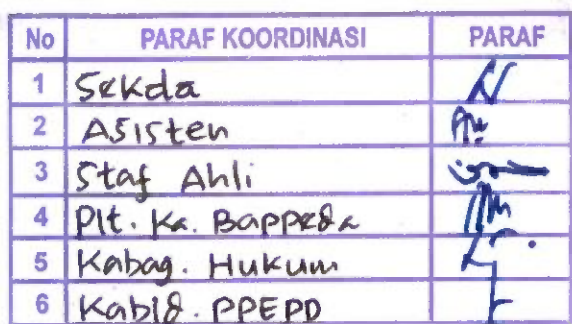 No PARAF KOORDINASI PARAF
1 Sekda
2 Asisten
3 Staf Ahli
4 Plt. Ka. Bappeda
5 Kabag. Hukum
6 Kabid. PPEPD